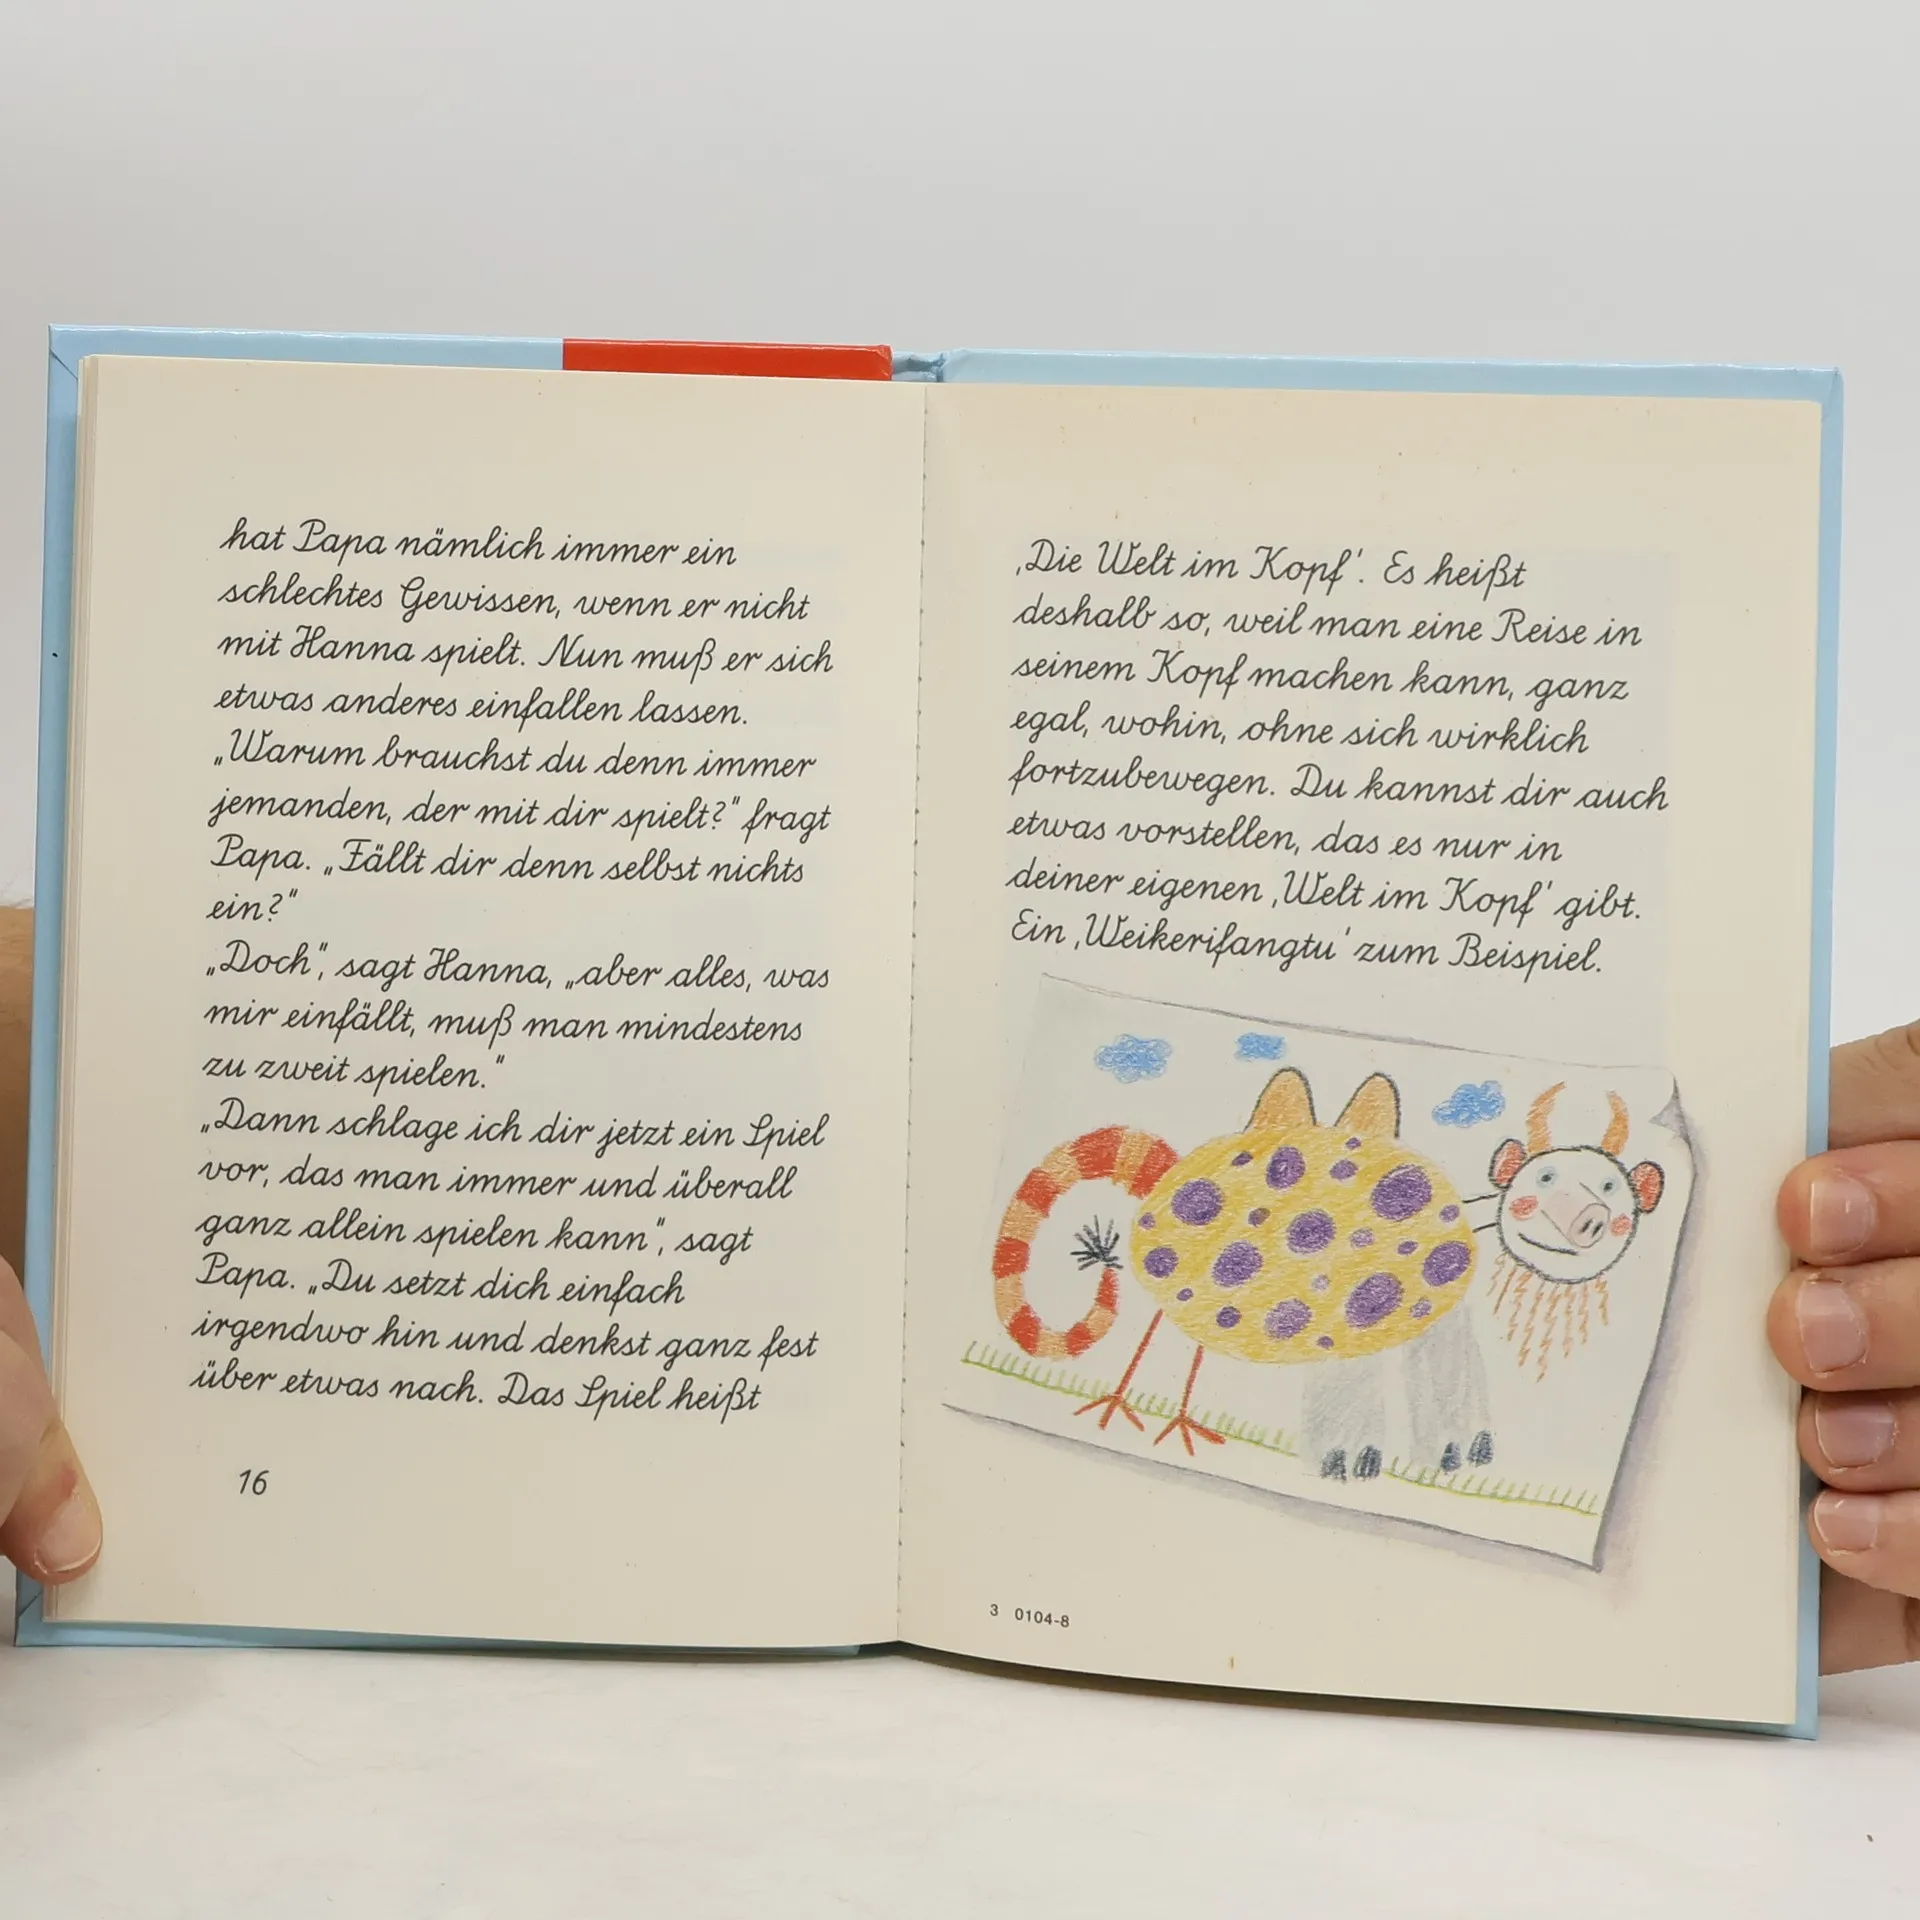 hat Papa nämlich immer ein
schlechtes Gewissen, wenn er nicht
mit Hanna spielt. Nun muß er sich
etwas anderes einfallen lassen.
„Warum brauchst du denn immer
jemanden, der mit dir spielt?“ fragt
Papa. „Fällt dir denn selbst nichts
ein?“
„Doch“, sagt Hanna, „aber alles, was
mir einfällt, muß man mindestens
zu zweit spielen.“
„Dann schlage ich dir jetzt ein Spiel
vor, das man immer und überall
ganz allein spielen kann“, sagt
Papa. „Du setzt dich einfach
irgendwo hin und denkst ganz fest
über etwas nach. Das Spiel heißt
16
‚Die Welt im Kopf‘. Es heißt
deshalb so, weil man eine Reise in
seinem Kopf machen kann, ganz
egal, wohin, ohne sich wirklich
fortzubewegen. Du kannst dir auch
etwas vorstellen, das es nur in
deiner eigenen ‚Welt im Kopf‘ gibt.
Ein ‚Weikerifangtu‘ zum Beispiel.
3 0104-8